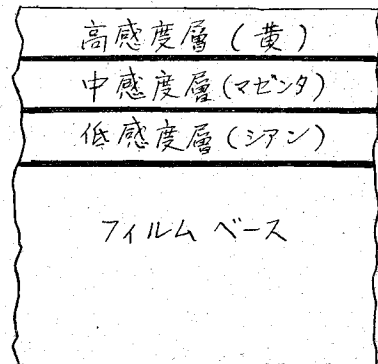 高感度層(黄)
中感度層(マゼンタ)
低感度層(シアン)
フィルムベース